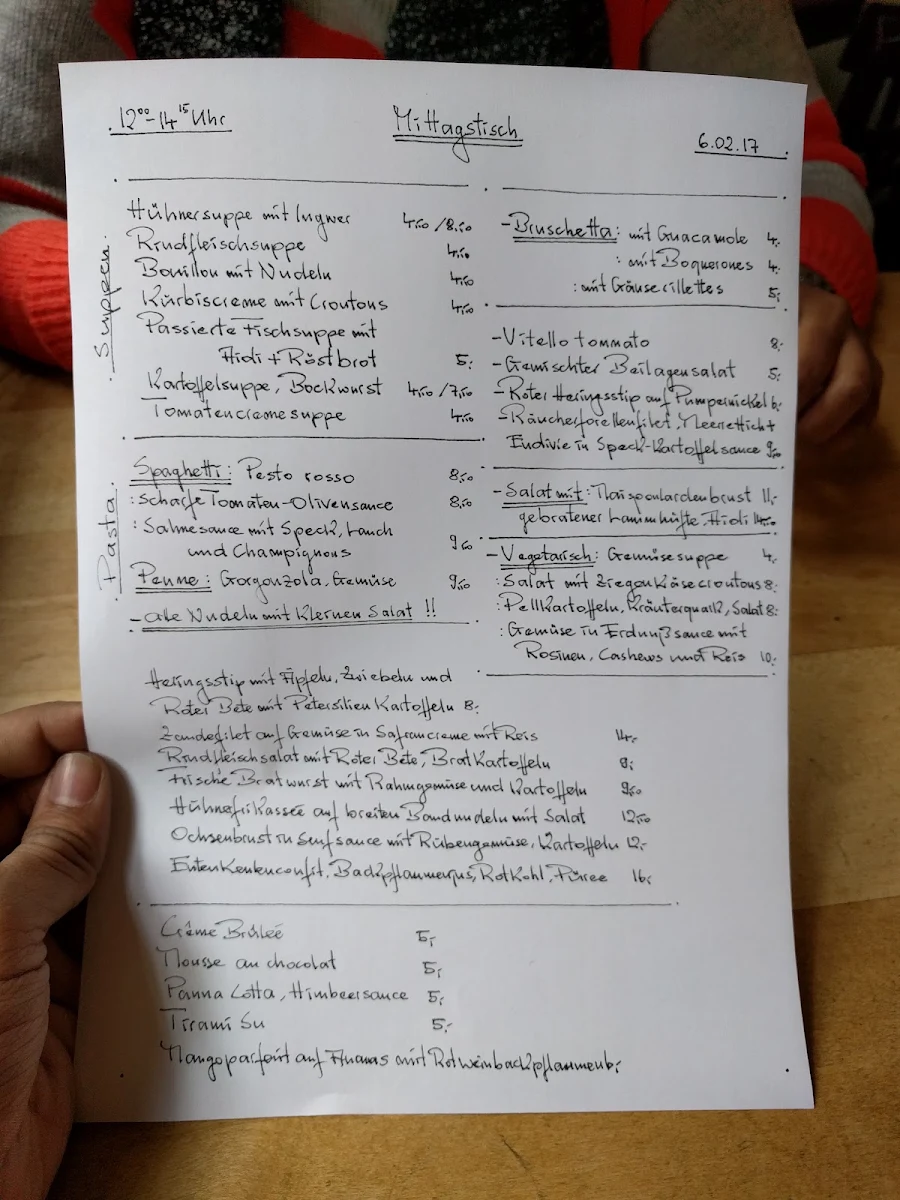 12⁰⁰-14¹⁵ Uhr
Mittagstisch
6.02.17
Suppen.
Hühnersuppe mit Ingwer 4,50 /8,50
Rindfleischsuppe 4,50
Bouillon mit Nudeln 4,50
Kürbiscreme mit Croutons 4,50
Passierte Fischsuppe mit
Aioli + Röstbrot 5,-
Kartoffelsuppe, Bockwurst 4,50 /7,50
Tomatencremesuppe 4,50
Pasta.
Spaghetti: Pesto rosso 8,50
: Scharfe Tomaten-Olivensauce 8,50
: Sahnesauce mit Speck, Lauch
und Champignons 9,50
Penne: Gorgonzola, Gemüse 9,50
- alle Nudeln mit kleinen Salat !!
- Bruschetta: mit Guacamole 4,-
: mit Boquerones 4,-
: mit Gänserillettes 5,-
- Vitello tommato 8,-
- Gemischter Beilagensalat 5,-
- Roter Heringsstip auf Pumpernickel 6,-
- Räucherforellenfilet, Meerettich +
Endivie in Speck-Kartoffelsauce 9,50
- Salat mit: Maispoulardenbrust 11,-
gebratener Lammhüfte, Aioli 14,50
- Vegetarisch: Gemüsesuppe 4,-
: Salat mit Ziegenkäsecroutons 8,-
: Pellkartoffeln, Kräuterquark, Salat 8,-
: Gemüse in Erdnußsauce mit
Rosinen, Cashews und Reis 10,-
Heringsstip mit Äpfeln, Zwiebeln und
Roter Bete mit Petersilienkartoffeln 8,-
Zanderfilet auf Gemüse in Safrancreme mit Reis 14,-
Rindfleischsalat mit Roter Bete, Bratkartoffeln 9,-
Frische Bratwurst mit Rahmgemüse und Kartoffeln 9,50
Hühnefrikassée auf breiten Bandnudeln mit Salat 12,50
Ochsenbrust in Senfsauce mit Rübengemüse, Kartoffeln 12,-
Entenkeulenconfit, Backpflaumenjus, Rotkohl, Püree 16,-
Crème Brûleé 5,-
Mousse au chocolat 5,-
Panna Cotta, Himbeersauce 5,-
Tirami Su 5,-
Mangoparfait auf Ananas mit Rotweinbackpflaumen 6,-